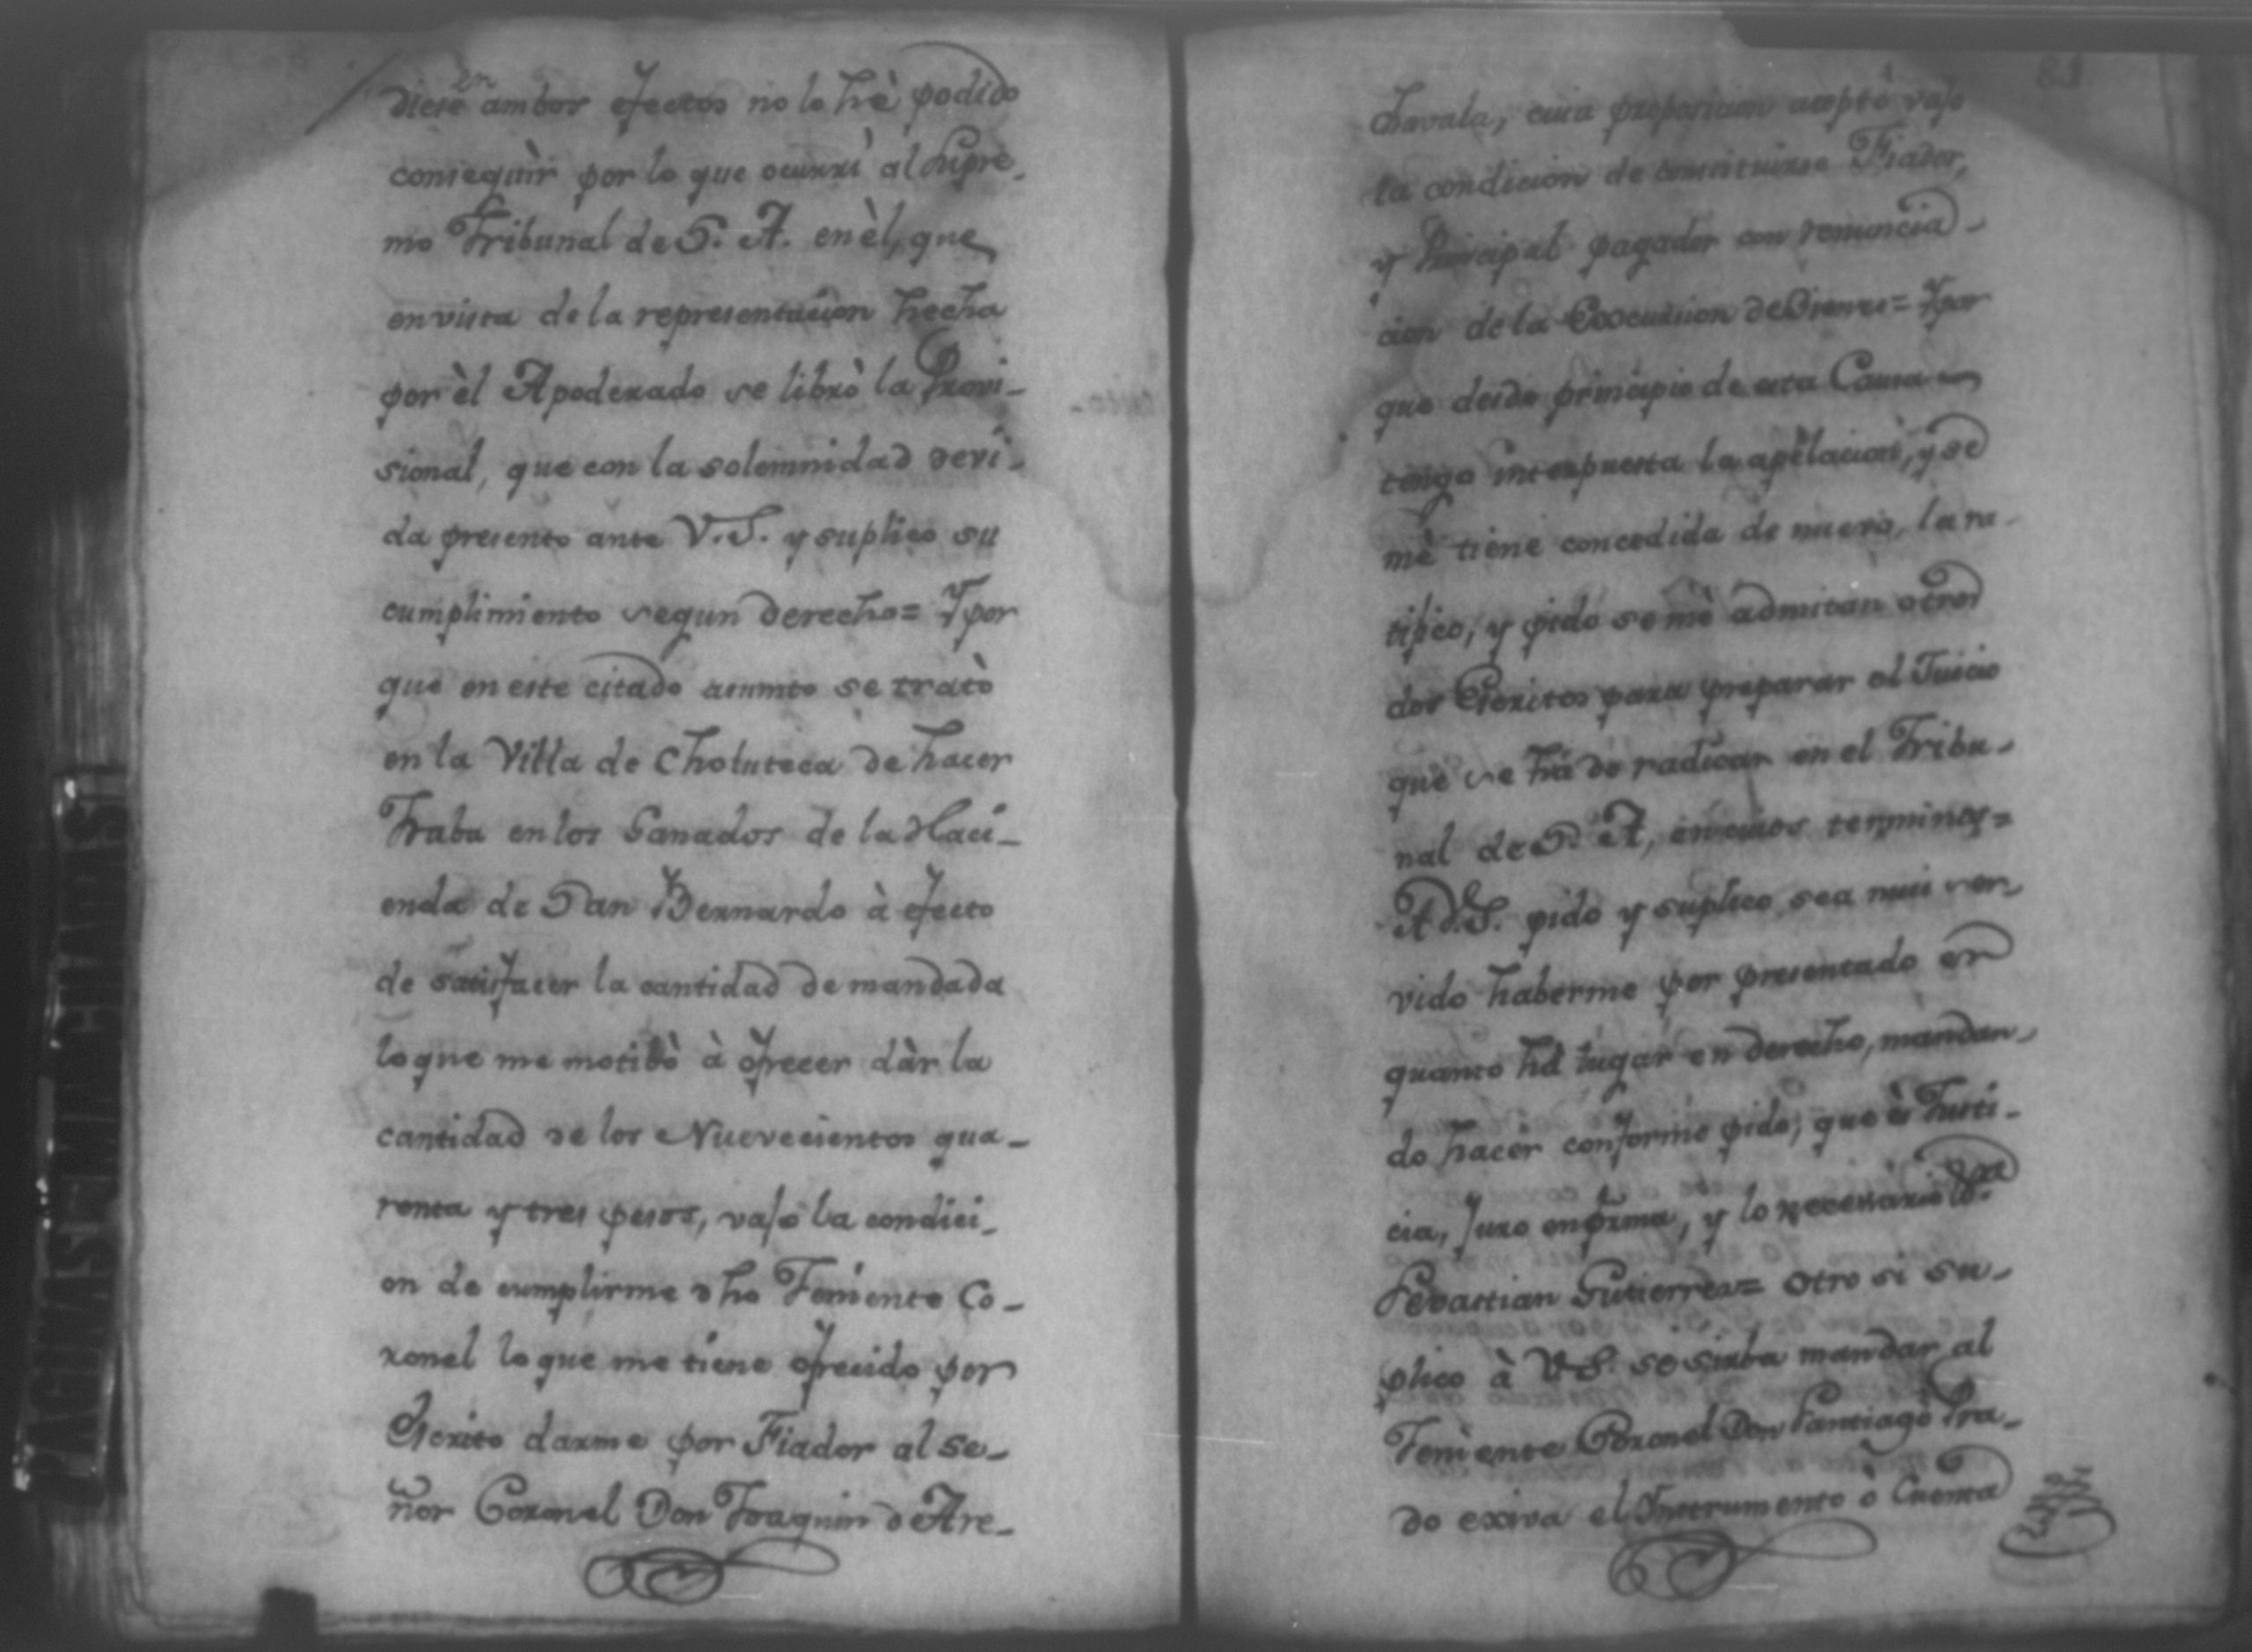 diese en ambos efectos no lo hè podido
conseguìr por lo que ocurrì al Supre-
mo Tribunal de S. A. en èl, que
en vista de la representacion hecha
por èl Apoderado se librò la Provi-
sional, que con la solemnidad devi-
da presento ante V.S. y suplico su
cumplimiento segun derecho= Ypor
que en este citado asumto se tratò
en la Villa de Choluteca de hacer
Traba en los Ganados de la Haci-
enda de San Bernardo à efecto
de satisfacer la cantidad demandada
lo que me motibò à ofrecer dàr la
cantidad de los Nuevecientos qua-
renta y tres pesos, vajo la condici-
on de cumplirme dho Teniente Co-
ronel lo que me tiene ofrecido por
Escrito darme por Fiador al se-
ñor Coronel Don Joaquin de Are-
chavala, cuia proposicion acepto vajo
la condicion de constituirse Fiador,
y Principal pagador con renuncia-
cion de la Excurcion de Vienes= Ypor
que desde principio de esta Causa
tengo interpuesta la apelacion, y se
mè tiene concedida de nuevo, la ra-
tifico, y pido se mè admitan otros
dos Escritos para preparar el Juicio
que se hà de radicar en el Tribu-
nal de S. A, en cuios terminos=
A V.S. pido y suplico sea mui ser-
vido haberme por presentado en
quanto hà lugar en derecho, mandan-
do hacer conforme pido; que ès Justi-
cia, Juro en forma, y lo necessario &ra
Sebastian Gutierrez= Otro si su-
plico à V.S. se sirba mandar al
Teniente Coronel Don Santiago Pra-
do exiva el Instrumento ò Cuenta